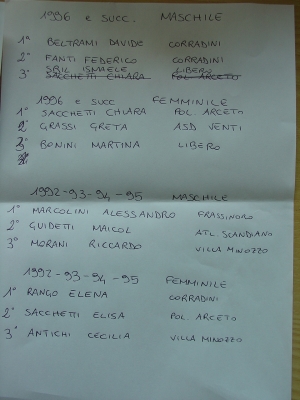 1996 e succ. MASCHILE
1° BELTRAMI DAVIDE CORRADINI
2° FANTI FEDERICO CORRADINI
SBIL ISMAELE LIBERO
3° SACCHETTI CHIARA POL. ARCETO
1996 e succ FEMMINILE
1° SACCHETTI CHIARA POL. ARCETO
2° GRASSI GRETA ASD VENTI
3° BONINI MARTINA LIBERO
1992-93-94-95 MASCHILE
1° MARCOLINI ALESSANDRO FRASSINORO
2° GUIDETTI MAICOL ATL SCANDIANO
3° MORANI RICCARDO VILLA MINOZZO
1992-93-94-95 FEMMINILE
1° RANGO ELENA CORRADINI
2° SACCHETTI ELISA POL. ARCETO
3° ANTICHI CECILIA VILLA MINOZZO